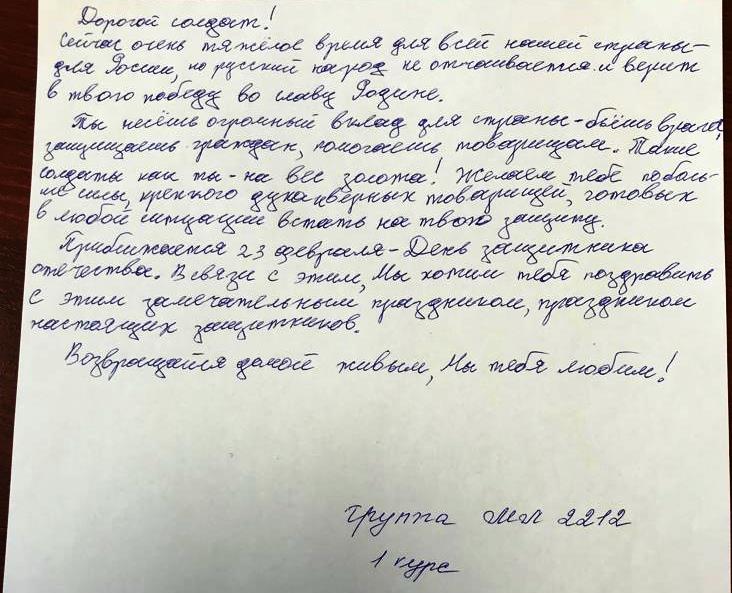 Дорогой солдат!
Сейчас очень тяжёлое время для всей нашей страны-
для России, но русский народ не отчаивается и верит
в твою победу во славу Родине.
Ты несёшь огромный вклад для страны - бьёшь врага,
защищаешь граждан, помогаешь товарищам. Такие
солдаты как ты - на вес золота! Желаем тебе поболь-
ше силы, крепкого духа и верных товарищей, готовых
в любой ситуации встать на твою защиту.
Приближается 23 февраля - День защитника
отечества. В связи с этим, Мы хотим тебя поздравить
с этим замечательным праздником, праздником
настоящих защитников.
Возвращайся домой живым, Мы тебя любим!
группа МЛ 2212
1 курс